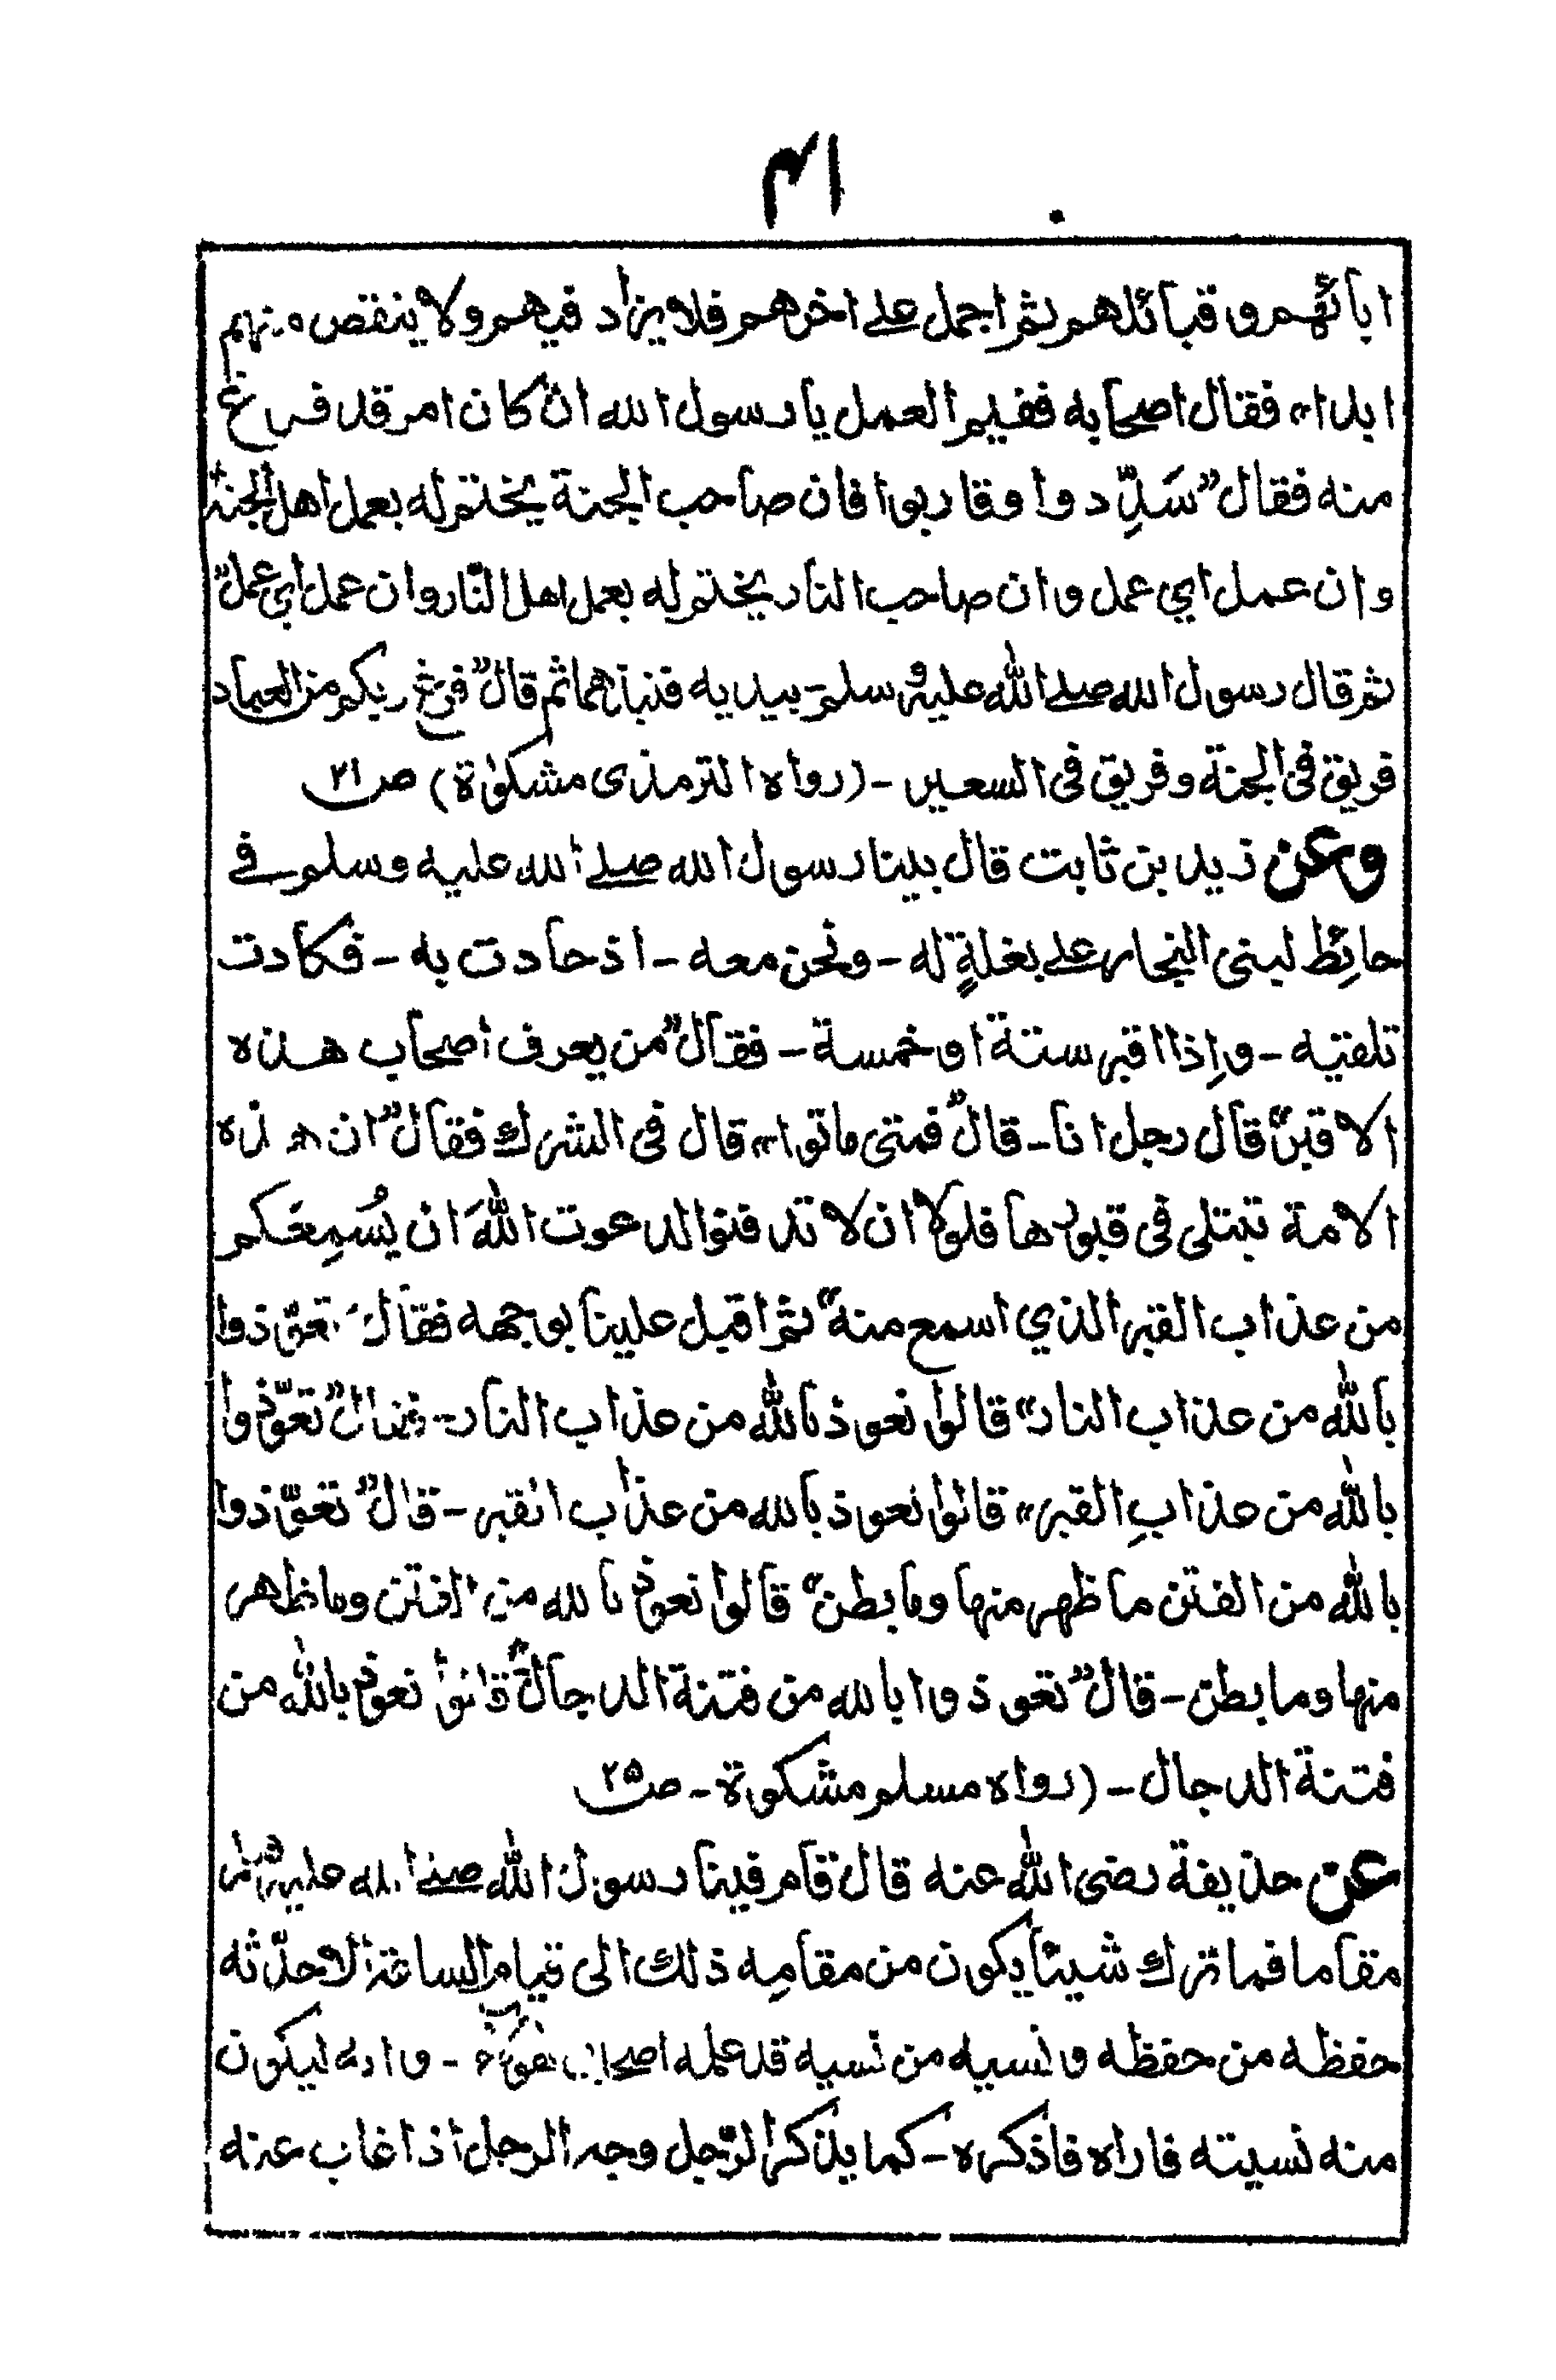 ۴۱
اٰبائهم و قبائلهم ثم اجمل على اخرهم فلا يزاد فيهم ولا ينقص منهم
ابدا" فقال اصحابه ففيم العمل يا رسول الله ان كان امر قد فرغ
منه فقال "سَدِّدوا وقاربوا فان صاحب الجنة يختم له بعمل اهل الجنة
وان عمل اي عمل وان صاحب النار يختم له بعمل اهل النّار وان عمل اي عمل"
ثم قال رسول الله صلى الله عليه وسلم - بيديه فنبذهما ثم قال "فرغ ربكم من العباد
فريق فى الجنة وفريق فى السعير - (رواه الترمذى مشكوٰة) ص۲۱
وعن زيد بن ثابت قال بينا رسول الله صلى الله عليه وسلم في
حائِط لبنى النجار على بغلةٍ له - ونحن معه - اذ حادت به - فكادت
تلقيه - واِذا اقبر ستة او خمسة - فقال "من يعرف اصحاب هذه
الاقبر" قال رجل انا - قال "فمتى ماتوا" قال فى الشرك فقال "ان هذه
الامة تبتلى فى قبورها فلولا ان لا تدفنوا لدعوت اللهَ ان يُسمِعَكم
من عذاب القبر الذي اسمع منه" ثم اقبل علينا بوجهه فقال "تعوّذوا
بالله من عذاب النار" قالوا نعوذ بالله من عذاب النار - فقال "تعوّذوا
بالله من عذابِ القبر" قالوا نعوذ بالله من عذاب القبر - قال "تعوّذوا
بالله من الفتن ما ظهر منها وما بطن" قالوا نعوذ بالله من الفتن وما ظهر
منها وما بطن - قال "تعوذوا بالله من فتنة الدجال" قالوا نعوذ بالله من
فتنة الدجال - (رواه مسلم مشكوة - ص۲۵
عن حذيفة رضى الله عنه قال قام فينا رسول الله صلى الله عليه وسلم
مقاما فما ترك شيئا يكون من مقامِه ذلك الى قيام الساعة الا حدّثه
حفظه من حفظه ونسيه من نسيه قد علمه اصحابى هؤلاء - وانه ليكون
منه نسيته فاراه فاذكره - كما يذكر الرّجل وجه الرجل اذا غاب عنه